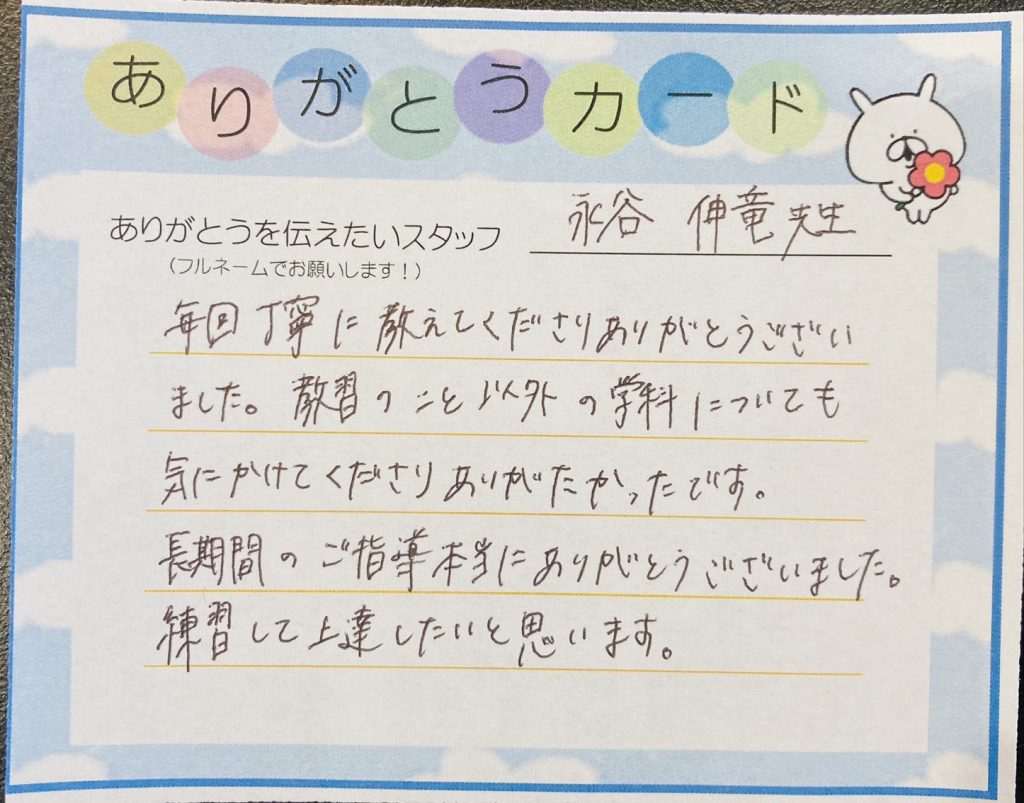 ありがとうカード
ありがとうを伝えたいスタッフ
永谷 伸竜先生
(フルネームでお願いします!)
毎回丁寧に教えてくださりありがとうござい
ました。教習のこと以外の学科についても
気にかけてくださりありがたかったです。
長期間のご指導本当にありがとうございました。
練習して上達したいと思います。